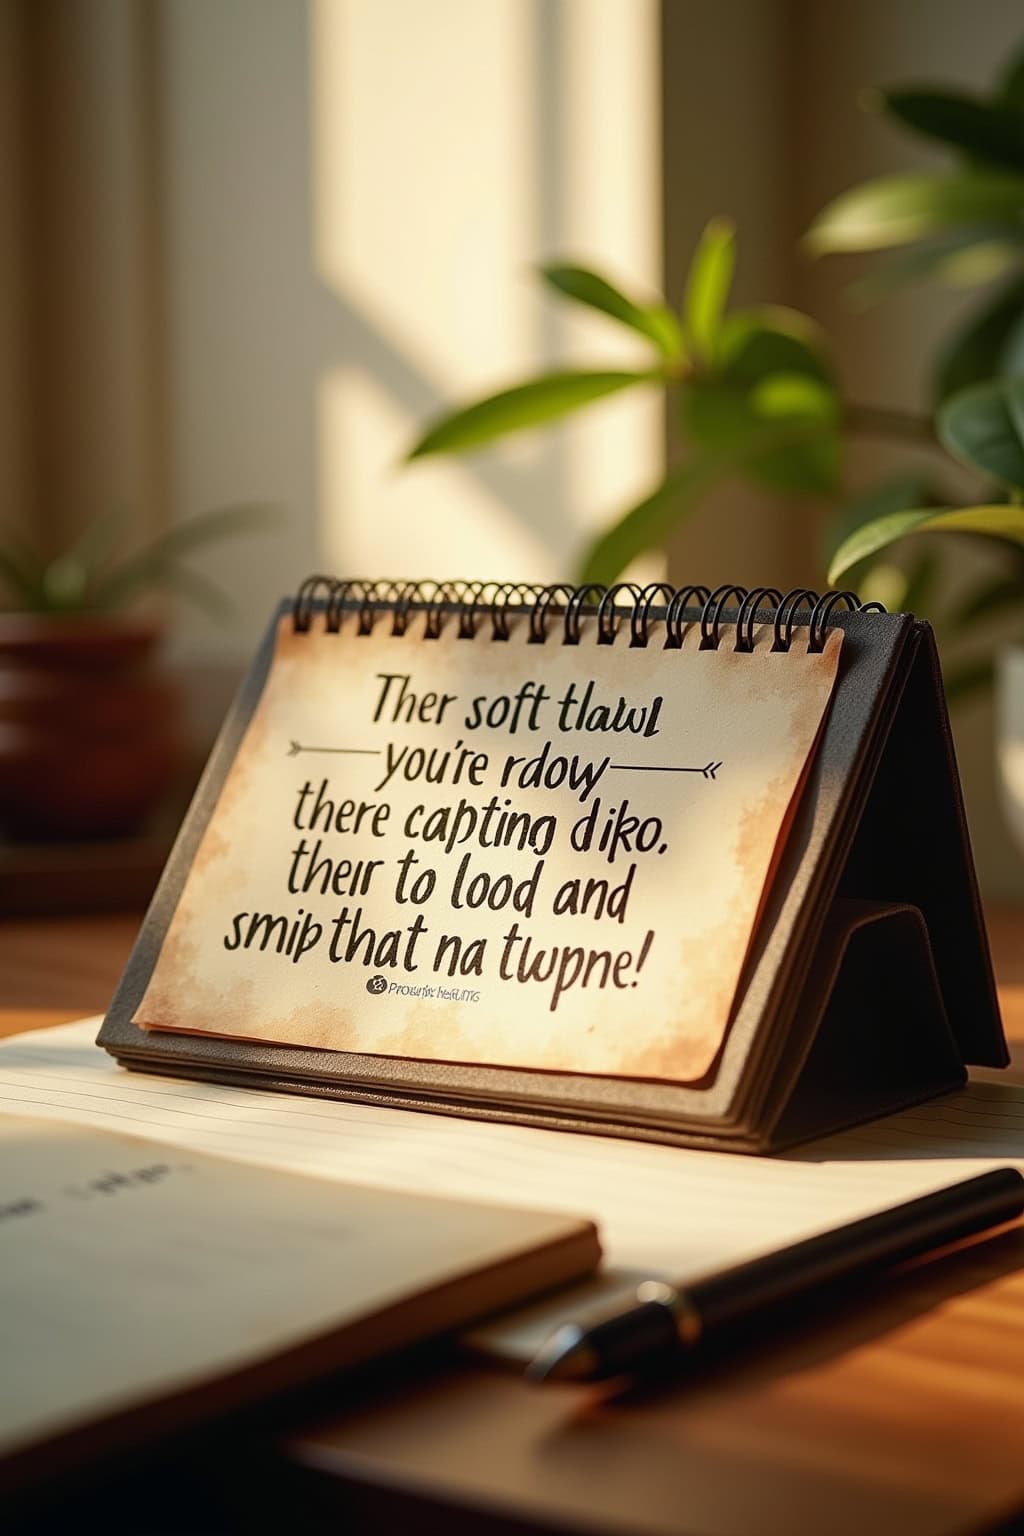 Ther soft tlawl
you're rdow
there capting diko.
their to lood and
smip that na twpne!